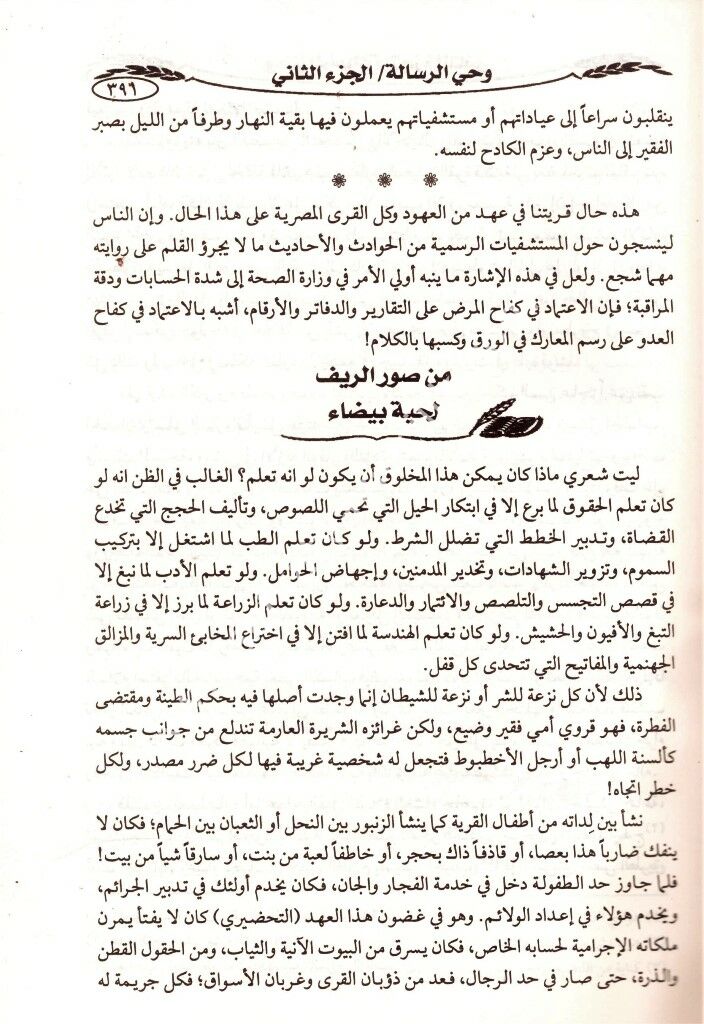 وحي الرسالة/ الجزء الثاني
٣٩٦
ينقلبون سراعاً إلى عياداتهم أو مستشفياتهم يعملون فيها بقية النهار وطرفاً من الليل بصبر
الفقير إلى الناس، وعزم الكادح لنفسه.
هذه حال قريتنا في عهد من العهود وكل القرى المصرية على هذا الحال. وإن الناس
لينسجون حول المستشفيات الرسمية من الحوادث والأحاديث ما لا يجرؤ القلم على روايته
مهما شجع. ولعل في هذه الإشارة ما ينبه أولي الأمر في وزارة الصحة إلى شدة الحسابات ودقة
المراقبة؛ فإن الاعتماد في كفاح المرض على التقارير والدفاتر والأرقام، أشبه بالاعتماد في كفاح
العدو على رسم المعارك في الورق وكسبها بالكلام!
من صور الريف
لحية بيضاء
ليت شعري ماذا كان يمكن هذا المخلوق أن يكون لو انه تعلم؟ الغالب في الظن انه لو
كان تعلم الحقوق لما برع إلا في ابتكار الحيل التي تحمي اللصوص، وتأليف الحجج التي تخدع
القضاة، وتدبير الخطط التي تضلل الشرط. ولو كان تعلم الطب لما اشتغل إلا بتركيب
السموم، وتزوير الشهادات، وتخدير المدمنين، وإجهاض الحوامل. ولو تعلم الأدب لما نبغ إلا
في قصص التجسس والتلصص والائتمار والدعارة. ولو كان تعلم الزراعة لما برز إلا في زراعة
التبغ والأفيون والحشيش. ولو كان تعلم الهندسة لما افتن إلا في اختراع المخابئ السرية والمزالق
الجهنمية والمفاتيح التي تتحدى كل قفل.
ذلك لأن كل نزعة للشر أو نزعة للشيطان إنما وجدت أصلها فيه بحكم الطينة ومقتضى
الفطرة، فهو قروي أمي فقير وضيع، ولكن غرائزه الشريرة العارمة تندلع من جوانب جسمه
كألسنة اللهب أو أرجل الأخطبوط فتجعل له شخصية غريبة فيها لكل ضرر مصدر، ولكل
خطر اتجاه!
نشأ بين لِداته من أطفال القرية كما ينشأ الزنبور بين النحل أو الثعبان بين الحمام؛ فكان لا
ينفك ضارباً هذا بعصا، أو قاذفاً ذاك بحجر، أو خاطفاً لعبة من بنت، أو سارقاً شياً من بيت!
فلما جاوز حد الطفولة دخل في خدمة الفجار والجان، فكان يخدم أولئك في تدبير الجرائم،
ويخدم هؤلاء في إعداد الولائم. وهو في غضون هذا العهد (التحضيري) كان لا يفتأ يمرن
ملكاته الإجرامية لحسابه الخاص، فكان يسرق من البيوت الآنية والثياب، ومن الحقول القطن
والذرة، حتى صار في حد الرجال، فعد من ذؤبان القرى وغربان الأسواق؛ فكل جريمة له